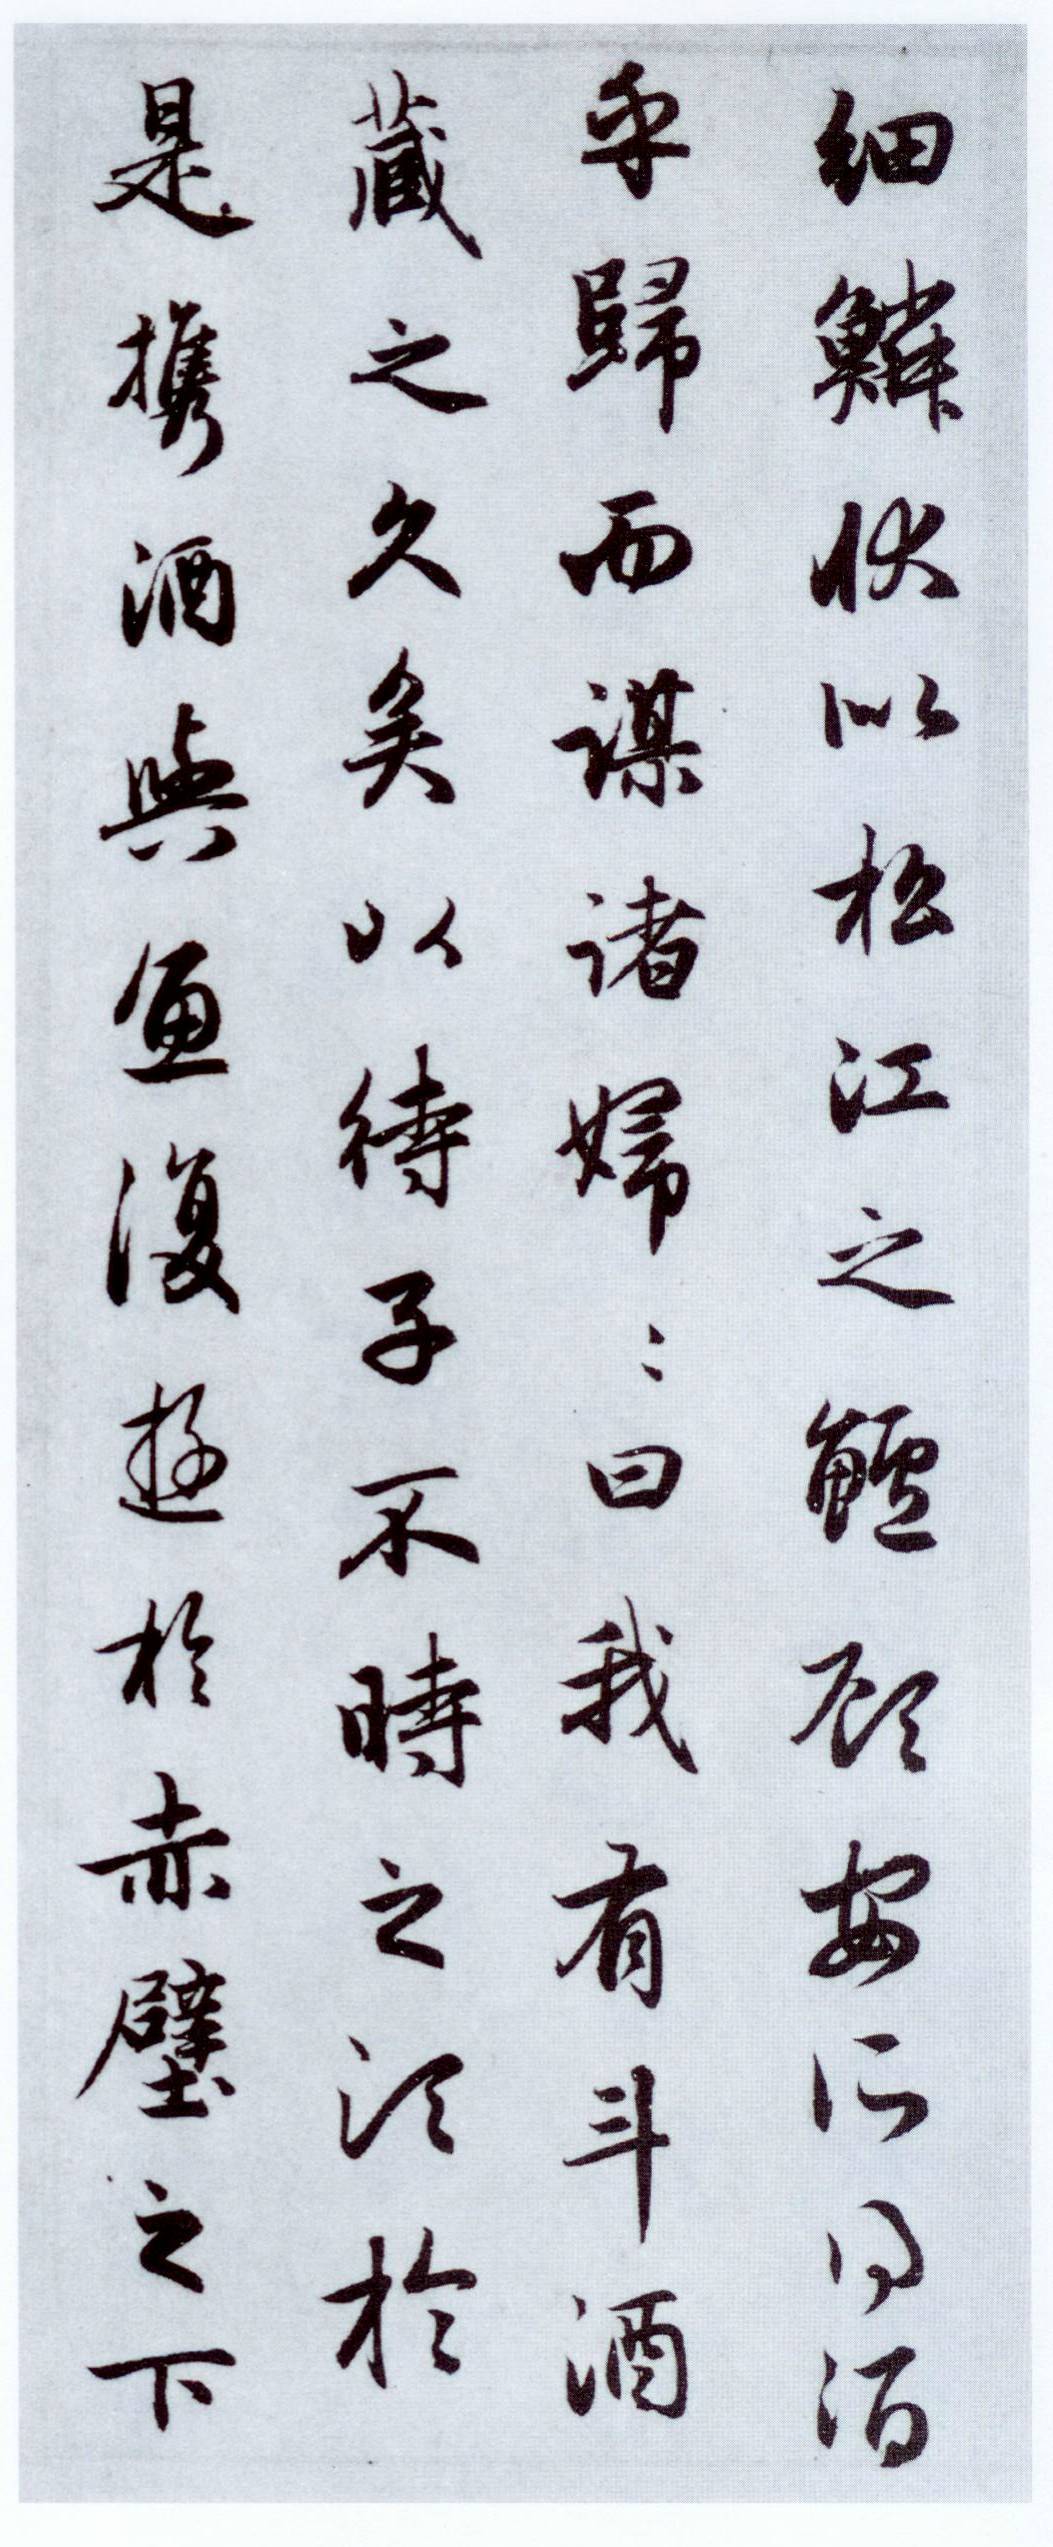 細鱗状似松江之鱸顧安所得酒
乎歸而謀諸婦〻曰我有斗酒
藏之久矣以待子不時之湏於
是攜酒與魚復遊於赤壁之下